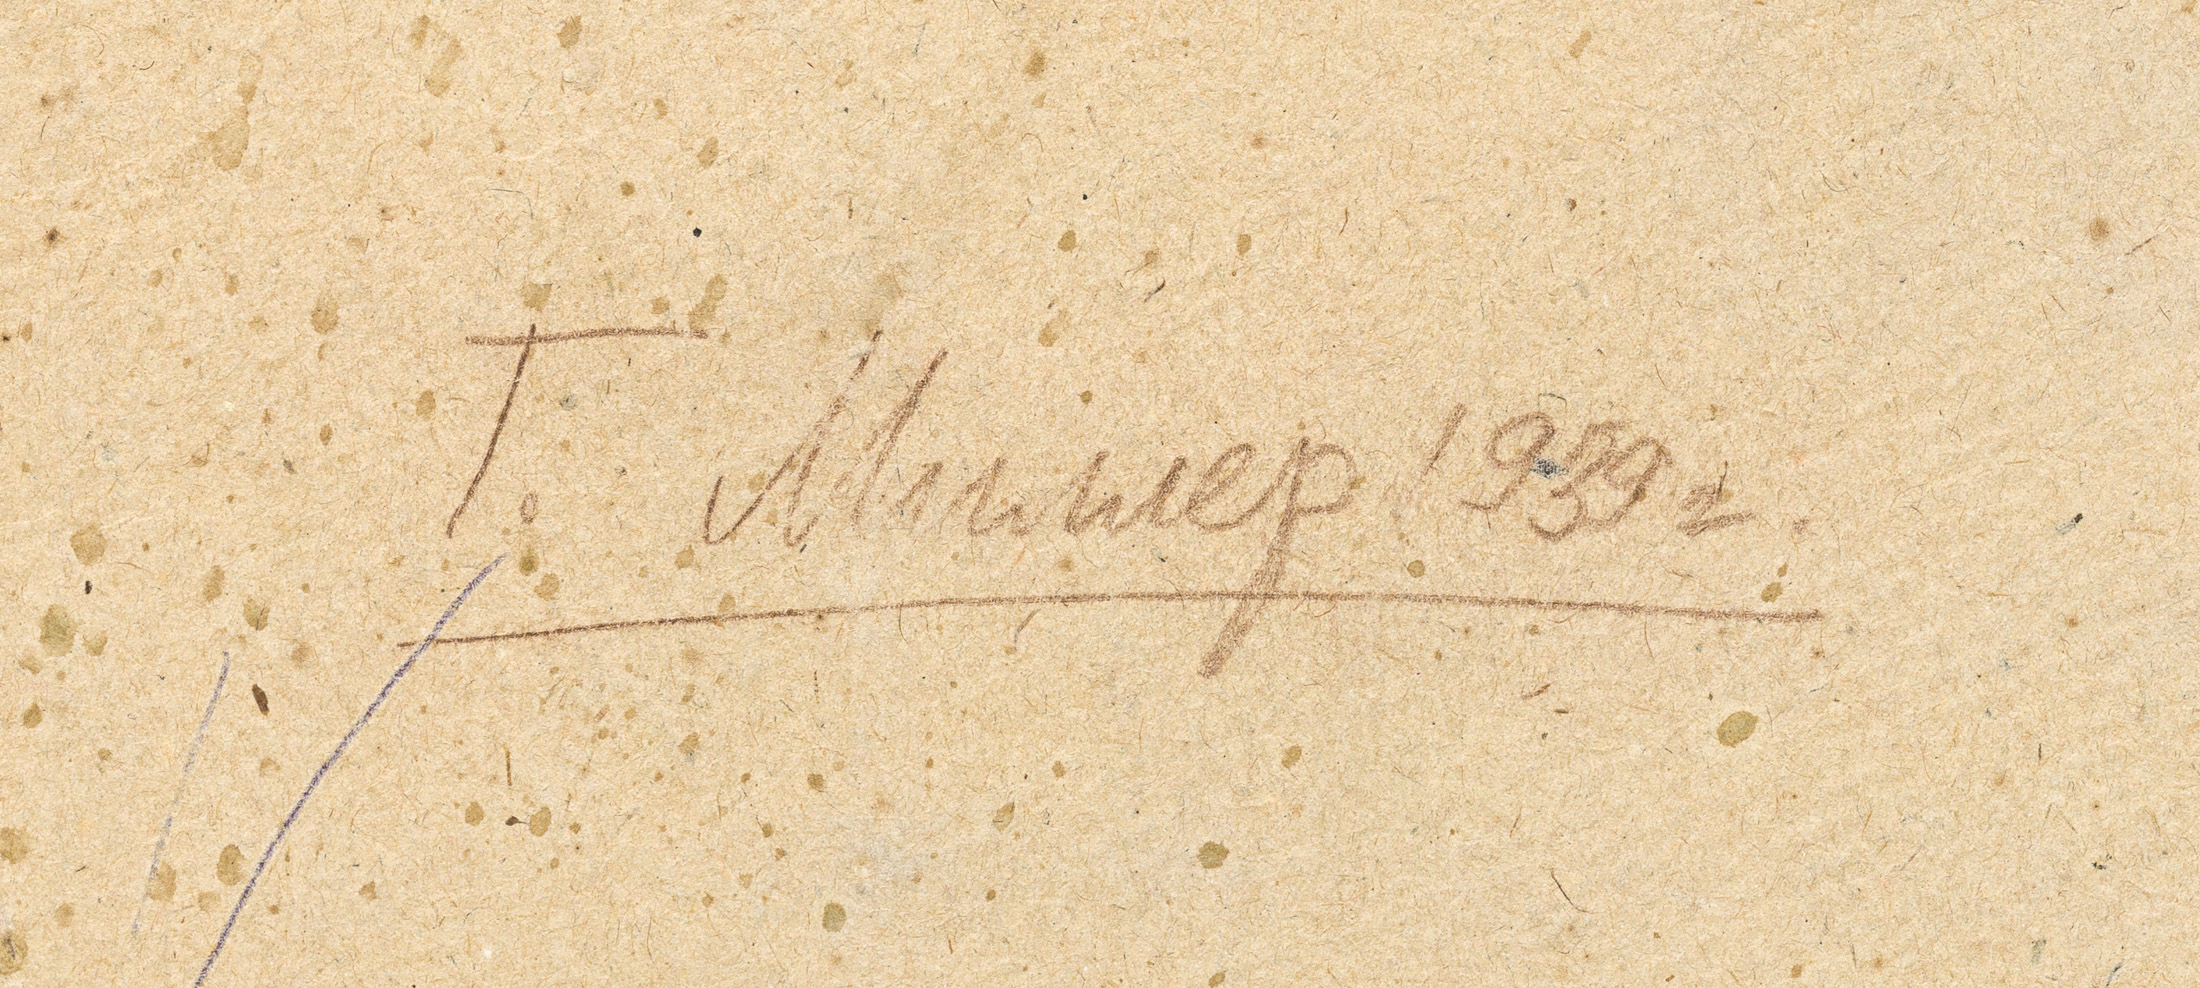 Г. Миллер 1939 г.